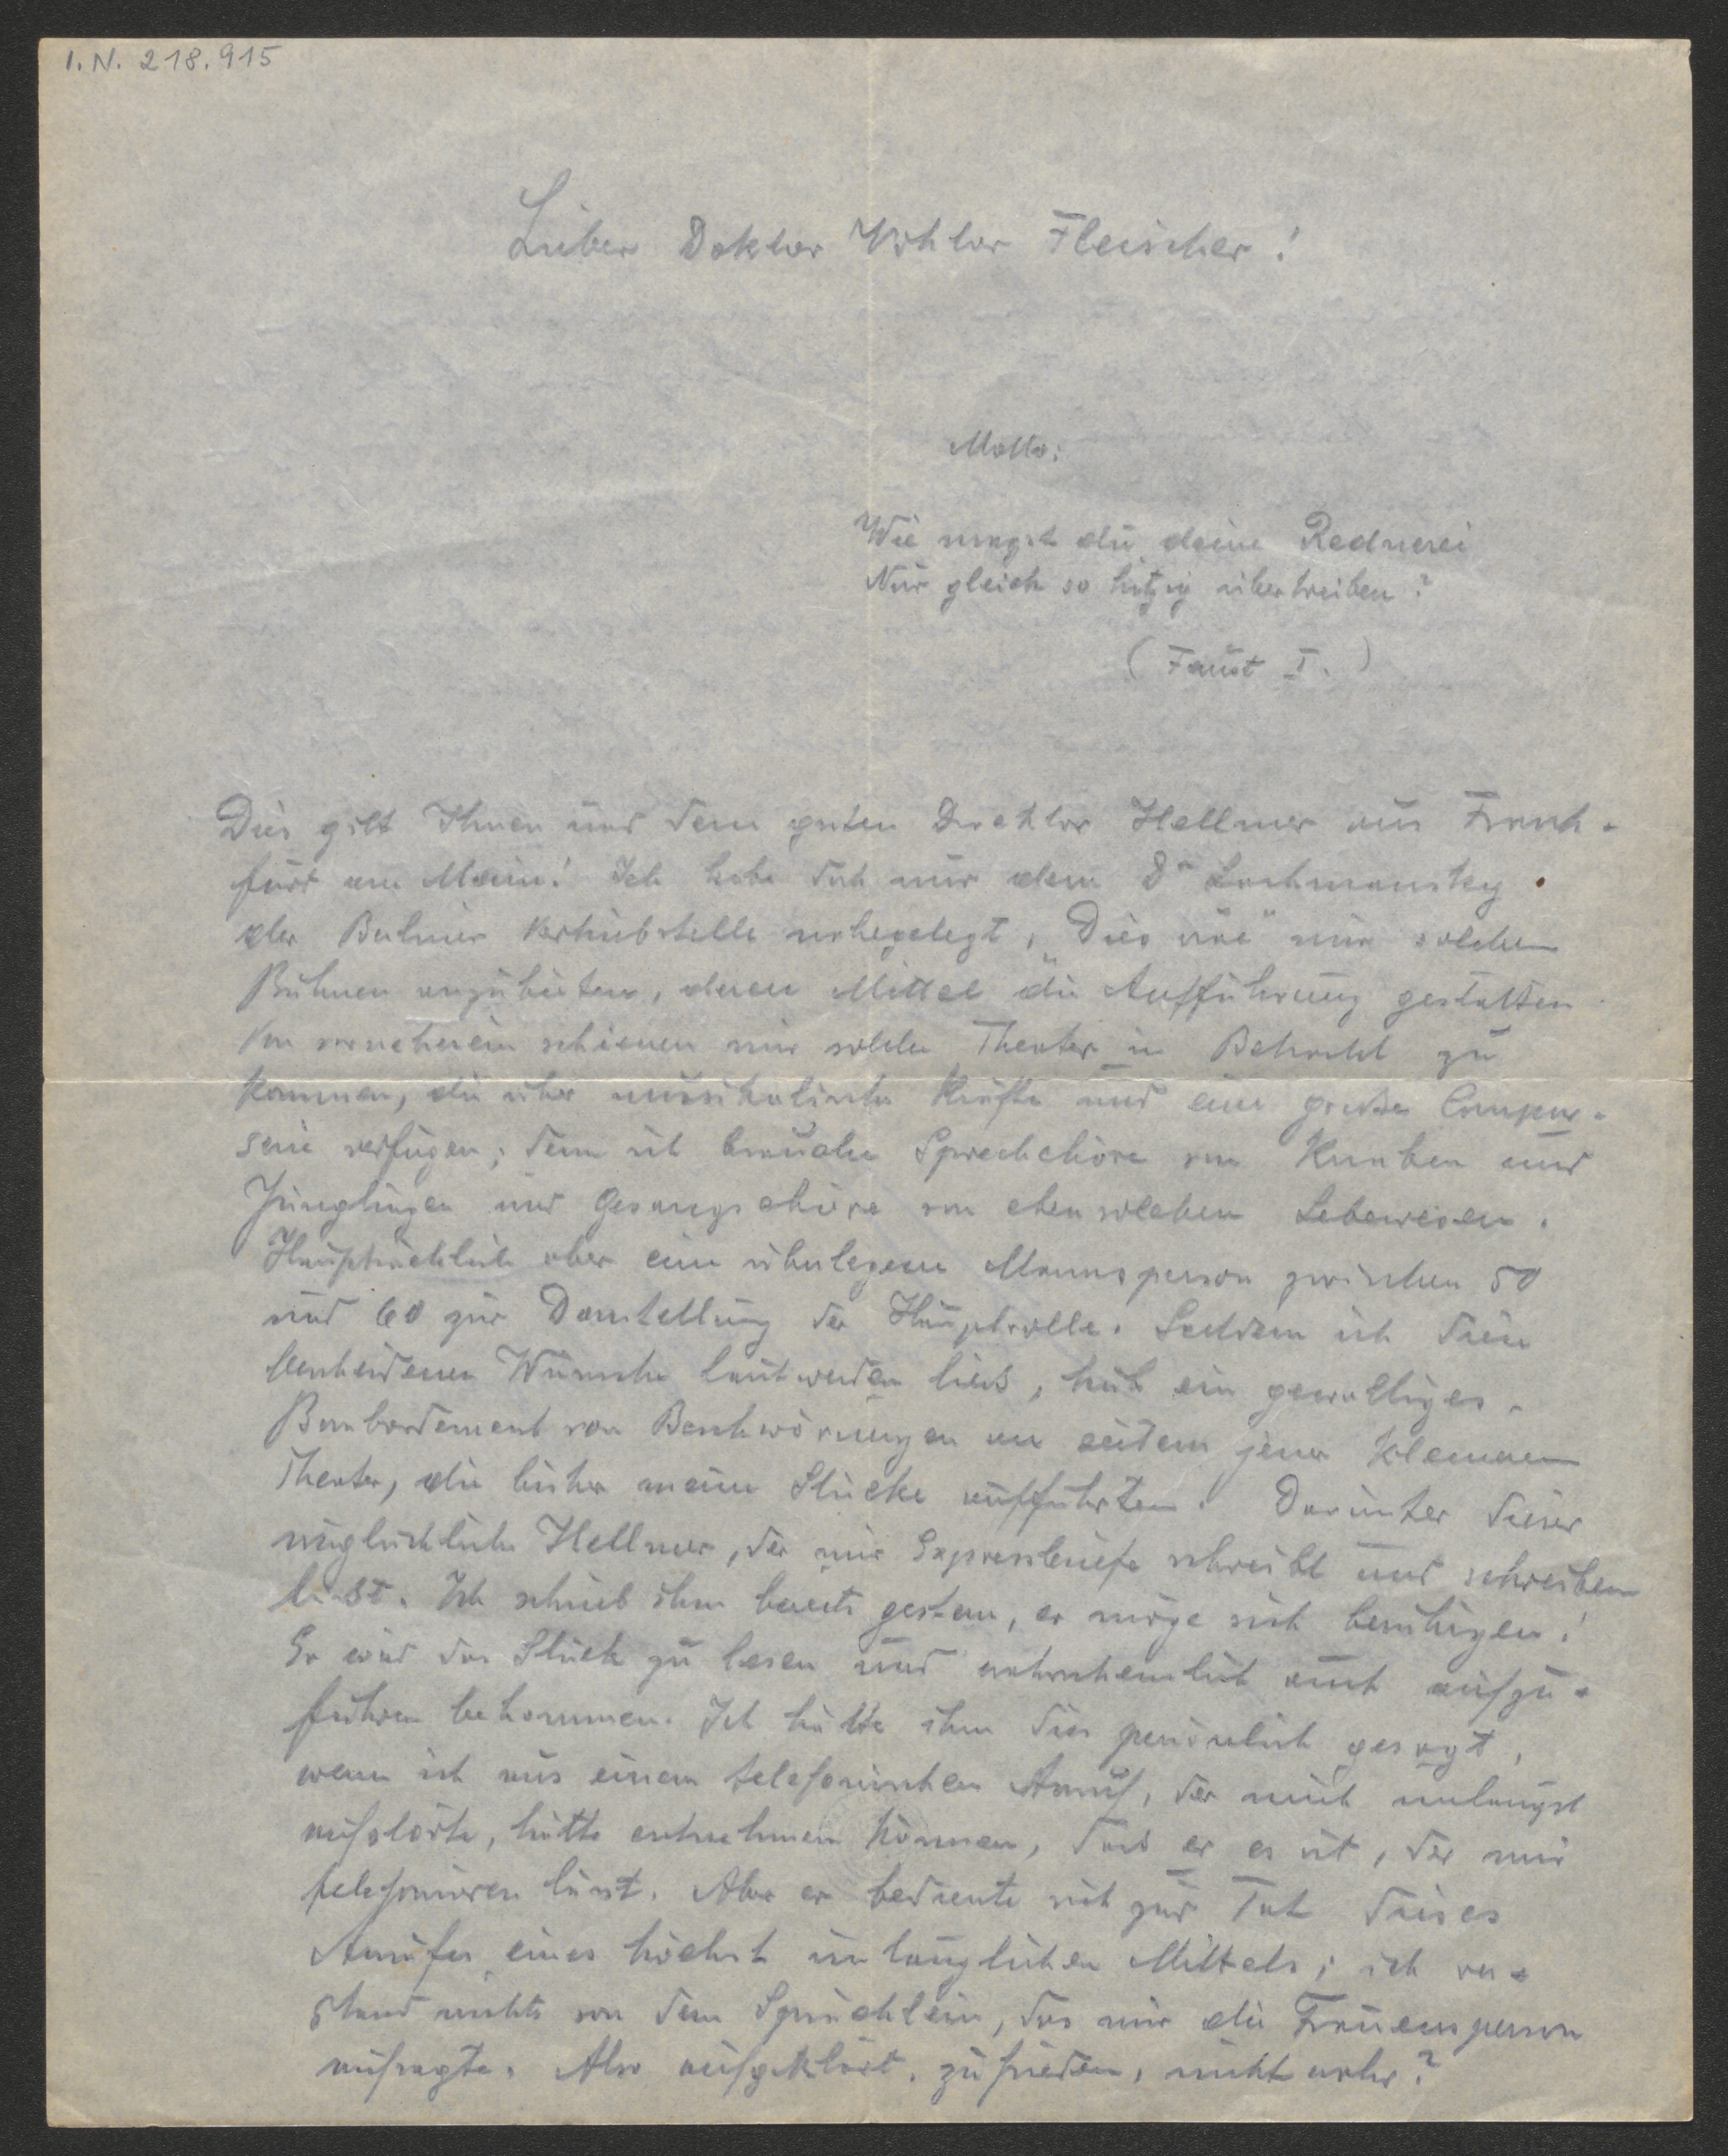 I. N. 218.915
Lieber Doktor Viktor Fleischer!
Motto:
Wie magst du deine Rednerei
Nur gleich so hitzig übertreiben?
(Faust I.)
Dies gilt Ihnen und dem guten Direktor Hellmer aus Frank-
furt am Main! Ich habe doch nur dem Dr
der Berliner Vertriebstelle nahegelegt, „Dies irae" nur solchen
Bühnen anzubieten, deren Mittel die Aufführung gestatten
Von vorneherein schienen mir solche Theater in Betracht zu
kommen, die über musikalische Kräfte und eine große Compar-
serie verfügen; denn ich brauche Sprechchöre von Knaben und
Jünglingen und Gesangschöre von ebensolchen Lebewesen.
Hauptsächlich aber eine überlegene Mannsperson zwischen 50
und 60 zur Darstellung der Hauptrolle. Seitdem ich diese
bescheidenen Wünsche lautwerden ließ, hub ein gewaltiges
Bombardement von Beschwörungen an seitens jener kleinen
Theater, die bisher meine Stücke aufführten. Darunter dieser
unglückliche Hellmer, der mir Expressbriefe schreibt und schreiben
lässt. Ich schrieb ihm bereits gestern, er möge sich beruhigen!
Er wird das Stück zu lesen und wahrscheinlich auch aufzu-
führen bekommen. Ich hätte ihm dies persönlich gesagt,
wenn ich aus einem telefonischen Anruf, der mich unlängst
aufstörte, hätte entnehmen können, dass er es ist, der mir
telefonieren lässt. Aber er bediente sich zur Tat dieses
Anrufes eines höchst untauglichen Mittels; ich ver-
stand nichts von dem Sprüchlein, das mir die Frauensperson
aufsagte. Also aufgeklärt, zufrieden, nicht wahr?